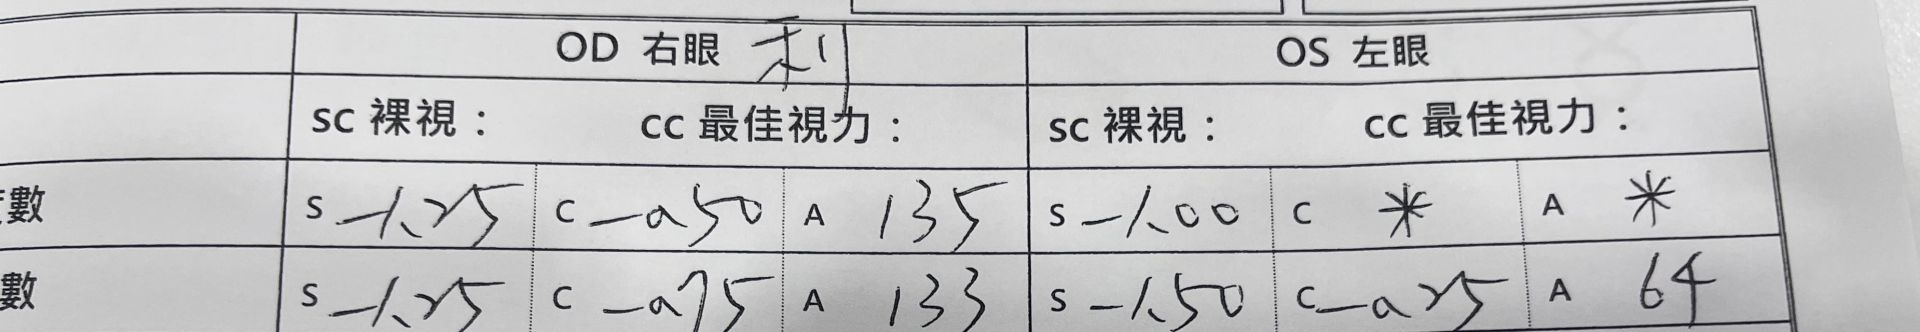 OD 右眼 利 OS 左眼
sc 裸視： cc 最佳視力： sc 裸視： cc 最佳視力：
度數 S -1.25 C -0.50 A 135 S -1.00 C * A *
數 S -1.25 C -0.75 A 133 S -1.50 C -0.25 A 64